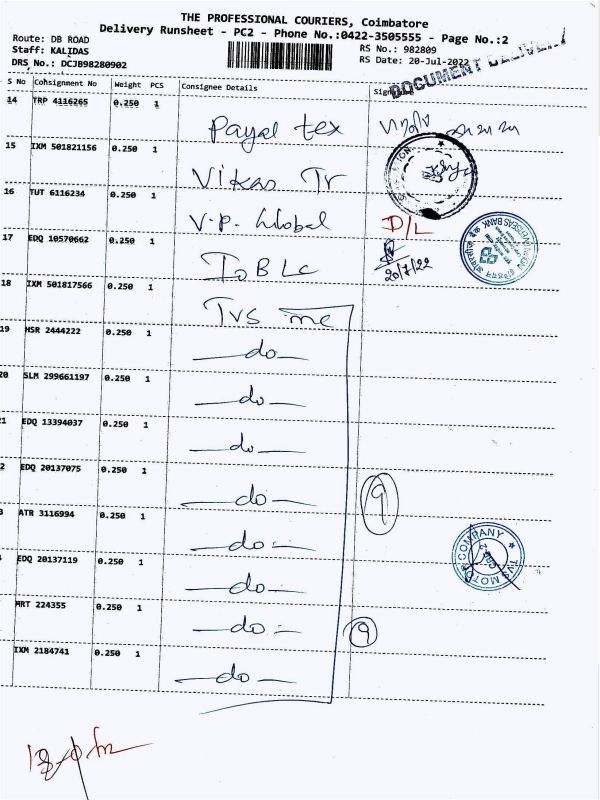 THE PROFESSIONAL COURIERS, Coimbatore
Delivery Runsheet - PC2 - Phone No.:0422-3505555 - Page No.:2
Route: DB ROAD
Staff: KALIDAS
DRS No.: DCJB98280902
RS No.: 982809
RS Date: 20-Jul-2022
DOCUMENT DELIVERY
S No Consignment No Weight PCS Consignee Details
14 TRP 4116265 0.250 1 Payal tex
15 IXM 501821156 0.250 1 Vikas Tr
16 TUT 6116234 0.250 1 V.P. Global D/L
17 EDQ 10570662 0.250 1 20/7/22
18 IXM 501817566 0.250 1 TVS mc
19 HSR 2444222 0.250 1 -do-
20 SLM 299661197 0.250 1 -do-
1 EDQ 13394037 0.250 1 -do-
2 EDQ 20137075 0.250 1 -do- 9
3 ATR 3116994 0.250 1 -do-
EDQ 20137119 0.250 1 -do-
MRT 224355 0.250 1 -do- 9
IXM 2184741 0.250 1 -do-
TVS MOTOR COMPANY